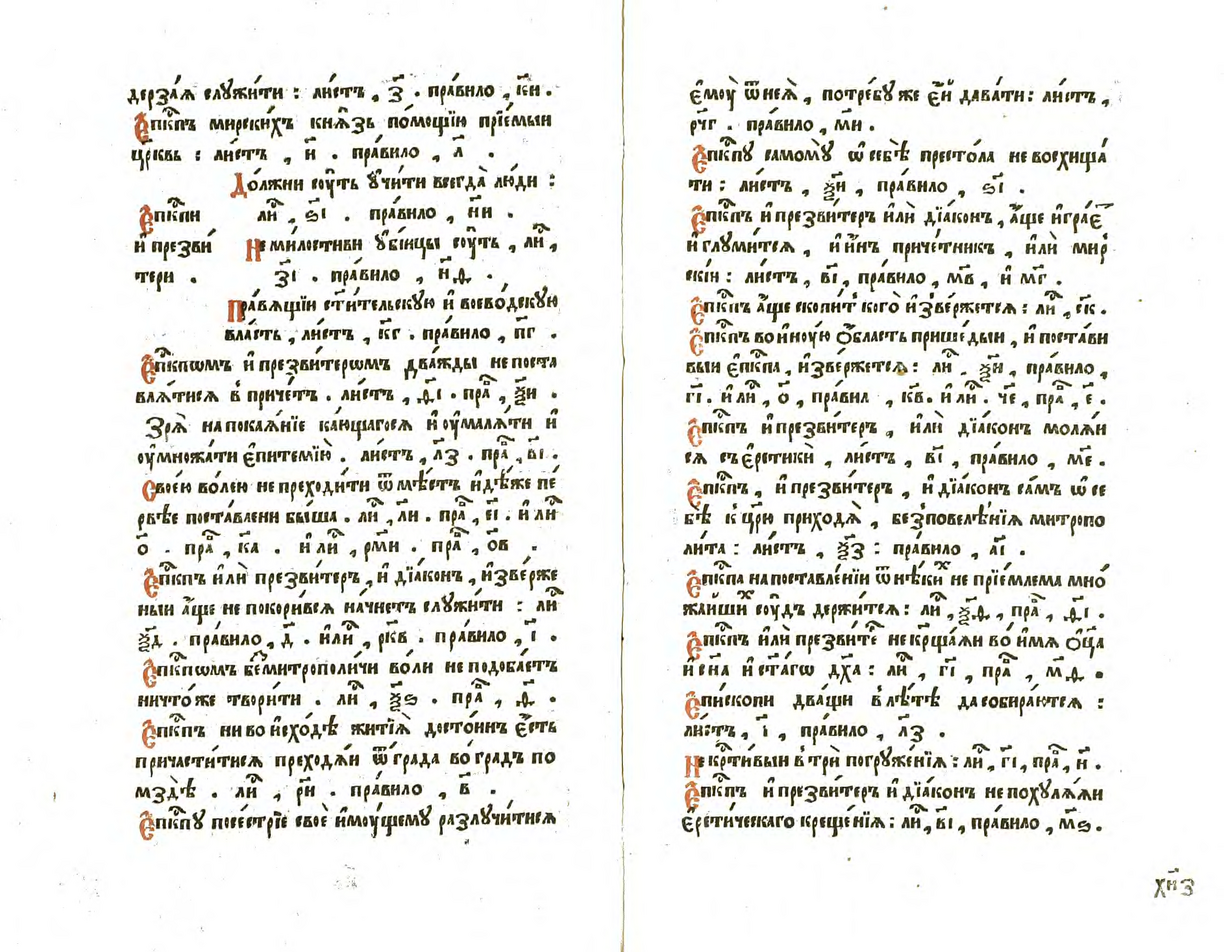 дерза́ѧ слꙋжи́ти : ли́стъ , з҃ . пра́вило , к҃и .
Є҆пⷭ҇кпъ мирски́хъ кнѧ҄зь по́мощїю прїе́мыи
цр҃ковь : ли́стъ , и҃ . пра́вило , л҃ .
До́лжни сꙋ́ть ᲂу҆чи́ти всегда̀ лю́ди :
Є҆пⷭ҇кпи ли́ , ѕ҃і . пра́вило , н҃и .
и҆ презви́ Неми́лостиви ᲂу҆бі́йцы сꙋ́ть , ли́ ,
тери . з҃і . пра́вило , н҃д .
Пра́вѧщїи ст҃и́тельскꙋю и҆ воево́дскꙋю
вла́сть , ли́стъ , к҃г . пра́вило , п҃г .
Є҆пⷭ҇кпѡмъ и҆ презви́терѡмъ два́жды не поста
влѧ́тисѧ в̾ при́четъ . ли́стъ , д҃і . пра́ , ѯ҃и .
Зрѧ̀ на покаѧ́нїе ка́ющагосѧ и҆ ᲂу҆малѧ́ти и҆
ᲂу҆множа́ти є҆питемі́ю . ли́стъ , л҃з . пра́ , в҃і .
Свое́ю во́лею не преходи́ти ѿ мѣ́стъ и҆дѣ́же пе
рвѣе поста́влени бы́ша . ли́ , л҃и . пра́ , є҃і . и҆ ли́
ѻ҃ . пра́ , к҃а . и҆ ли́ , рм҃и . пра́ , ѻ҃в .
Є҆пⷭ҇кпъ и҆лѝ презви́теръ , и҆ дїа́конъ , и҆зве́рже
ныи а҆́ще не покори́всѧ на́чнетъ слꙋжи́ти : ли́
ѯ҃д . пра́вило , д҃ . и҆ли́ , рк҃в . пра́вило , і҃ .
Є҆пⷭ҇кпѡмъ беⷥ митрополи́чи во́ли не подоба́етъ
ничто́же твори́ти . ли́ , ѯ҃ѕ . пра́ , д҃ .
Є҆пⷭ҇кпъ ни во и҆схо́дѣ житїѧ̀ досто́инъ є҆́сть
причасти́тисѧ преходѧ́и ѿ гра́да во́ градъ по
мздѣ̀ . ли́ , р҃и . пра́вило , в҃ .
Є҆пⷭ҇кпꙋ посестрїе своѐ и҆мꙋ́щемꙋ разлꙋчи́тисѧ
є҆мꙋ̀ ѿ неѧ̀ , потре́бꙋ же є҆́и дава́ти : ли́стъ ,
рч҃г . пра́вило , м҃и .
Є҆пⷭ҇кпꙋ самомꙋ̀ ѡ҆ себѣ̀ престо́ла не восхища́
ти : ли́стъ , ѯ҃и , пра́вило , ѕ҃і .
Є҆пⷭ҇кпъ и҆ презви́теръ и҆лѝ дїа́конъ , а҆́ще и҆грае́
и҆ глꙋми́тсѧ , и҆ и҆́нъ приче́тникъ , и҆лѝ мир
скі́и : ли́стъ , в҃і , пра́вило , м҃в , и҆ м҃г .
Є҆пⷭ҇кпъ а҆́ще скопи́т̾ кого̀ и҆зве́ржетсѧ : ли́ , ск҃ .
Є҆пⷭ҇кпъ во и҆нꙋ́ю ѻ҆́бласть прише́дыи , и҆ поста́ви
выи є҆пⷭ҇кпа , и҆зве́ржетсѧ : ли́ . ѯ҃и , пра́вило ,
г҃і . и҆ ли́ , ѻ҃ , пра́вил , к҃в . и҆ ли́ . ч҃е , пра́ , е҃ .
Є҆пⷭ҇кпъ и҆ презви́теръ , и҆лѝ дїа́конъ молѧ́и
сѧ съ є҆ретикѝ , ли́стъ , в҃і , пра́вило , м҃е .
Є҆пⷭ҇кпъ , и҆ презви́теръ , и҆ дїа́конъ са́мъ ѡ҆ се
бѣ̀ к̾ цр҃ю̀ приходѧ̀ , без̾ повелѣ́нїѧ митропо
ли́та : ли́стъ , ѯ҃з : пра́вило , а҃і .
Є҆пⷭ҇кпа на поставле́нїи ѿ нѣ́кихъ не прїе́млема мно́
жаишихъ сꙋ́дъ держи́тсѧ : ли́ , ѯ҃д , пра́ , д҃і .
Є҆пⷭ҇кпъ и҆лѝ презви́теръ не крⷭ҇ща́ѧи во́ и҆мѧ ѻ҆ц҃а̀
и҆ сн҃а и҆ ст҃а́гѡ дх҃а : ли́ , г҃і , пра́ , м҃д .
Є҆пи́скопи два́щи в̾ лѣ́тѣ да собира́ютсѧ :
ли́стъ , і҃ , пра́вило , л҃з .
Не крⷭ҇ти́выи в̾ трѝ погрꙋже́нїѧ : ли́ , г҃і , пра́ , н҃ .
Є҆пⷭ҇кпъ и҆ презви́теръ и҆ дїа́конъ не похꙋлѧ́ѧи
є҆рети́ческаго креще́нїѧ : ли́ , в҃і , пра́вило , м҃ѕ .